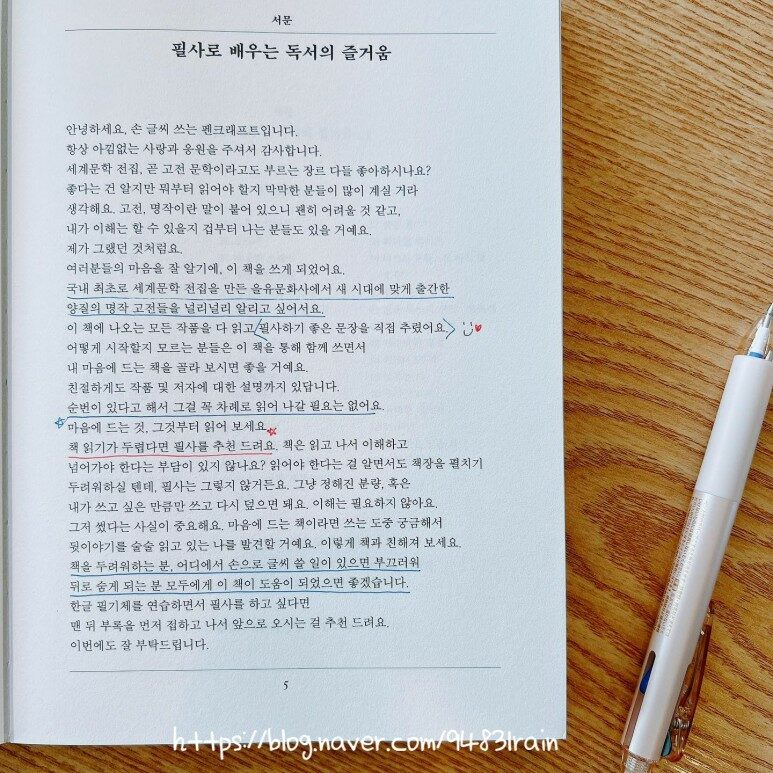 서문
필사로 배우는 독서의 즐거움
안녕하세요, 손 글씨 쓰는 펜크래프트입니다.
항상 아낌없는 사랑과 응원을 주셔서 감사합니다.
세계문학 전집, 곧 고전 문학이라고도 부르는 장르 다들 좋아하시나요?
좋다는 건 알지만 뭐부터 읽어야 할지 막막한 분들이 많이 계실 거라
생각해요. 고전, 명작이란 말이 붙어 있으니 괜히 어려울 것 같고,
내가 이해는 할 수 있을지 겁부터 나는 분들도 있을 거예요.
제가 그랬던 것처럼요.
여러분들의 마음을 잘 알기에, 이 책을 쓰게 되었어요.
국내 최초로 세계문학 전집을 만든 을유문화사에서 새 시대에 맞게 출간한
양질의 명작 고전들을 널리널리 알리고 싶어서요.
이 책에 나오는 모든 작품을 다 읽고 필사하기 좋은 문장을 직접 추렸어요.
어떻게 시작할지 모르는 분들은 이 책을 통해 함께 쓰면서
내 마음에 드는 책을 골라 보시면 좋을 거예요.
친절하게도 작품 및 저자에 대한 설명까지 있답니다.
순번이 있다고 해서 그걸 꼭 차례로 읽어 나갈 필요는 없어요.
마음에 드는 것, 그것부터 읽어 보세요.
책 읽기가 두렵다면 필사를 추천 드려요. 책은 읽고 나서 이해하고
넘어가야 한다는 부담이 있지 않나요? 읽어야 한다는 걸 알면서도 책장을 펼치기
두려워하실 텐데, 필사는 그렇지 않거든요. 그냥 정해진 분량, 혹은
내가 쓰고 싶은 만큼만 쓰고 다시 덮으면 돼요. 이해는 필요하지 않아요.
그저 썼다는 사실이 중요해요. 마음에 드는 책이라면 쓰는 도중 궁금해서
뒷이야기를 술술 읽고 있는 나를 발견할 거예요. 이렇게 책과 친해져 보세요.
책을 두려워하는 분, 어디에서 손으로 글씨 쓸 일이 있으면 부끄러워
뒤로 숨게 되는 분 모두에게 이 책이 도움이 되었으면 좋겠습니다.
한글 필기체를 연습하면서 필사를 하고 싶다면
맨 뒤 부록을 먼저 접하고 나서 앞으로 오시는 걸 추천 드려요.
이번에도 잘 부탁드립니다.
5
https://blog.naver.com/9483lrain